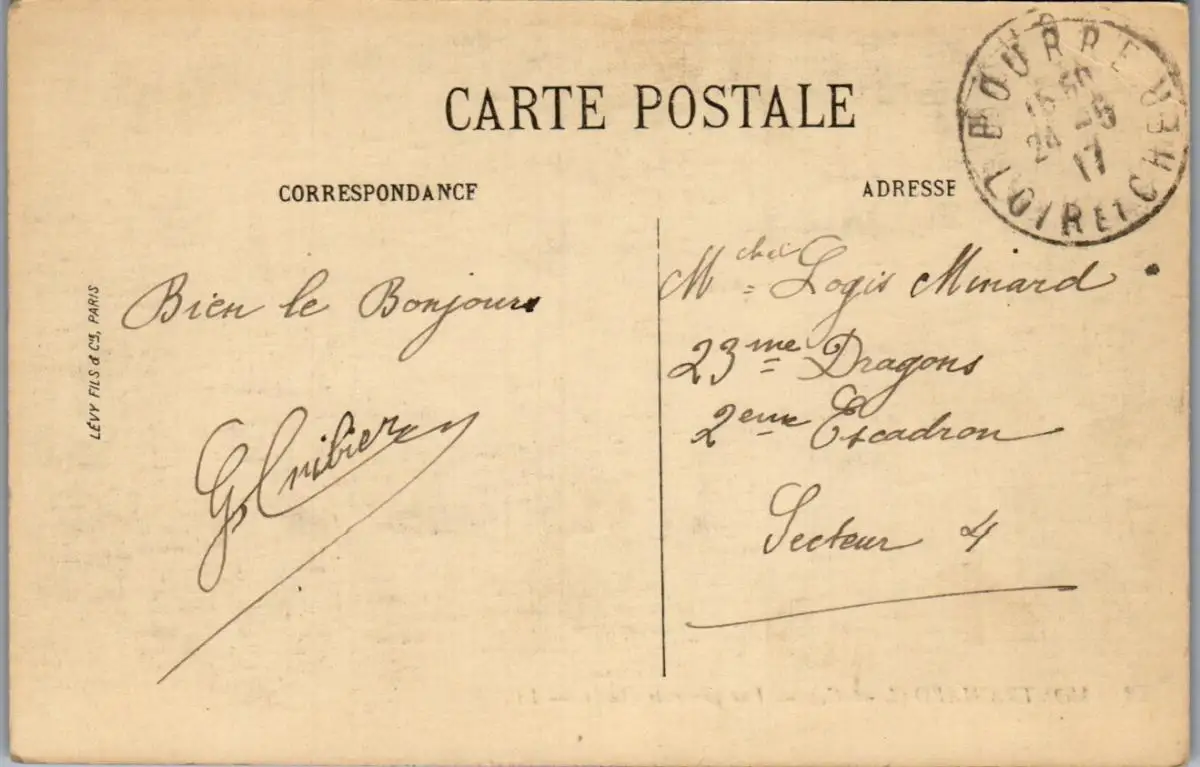 CARTE POSTALE
CORRESPONDANCE
ADRESSE
BOURRÉ
15 50
24 -5
17
LOIR ET CHER
Bien le Bonjour
LÉVY FILS & Cie, PARIS
Mchal = Logis Minard
23me Dragons
2eme Escadron
Secteur 4